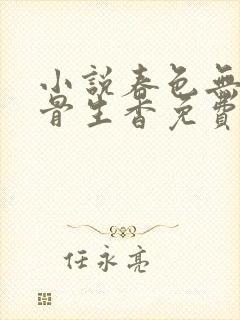 小說春色無
骨生香免費
任永亮